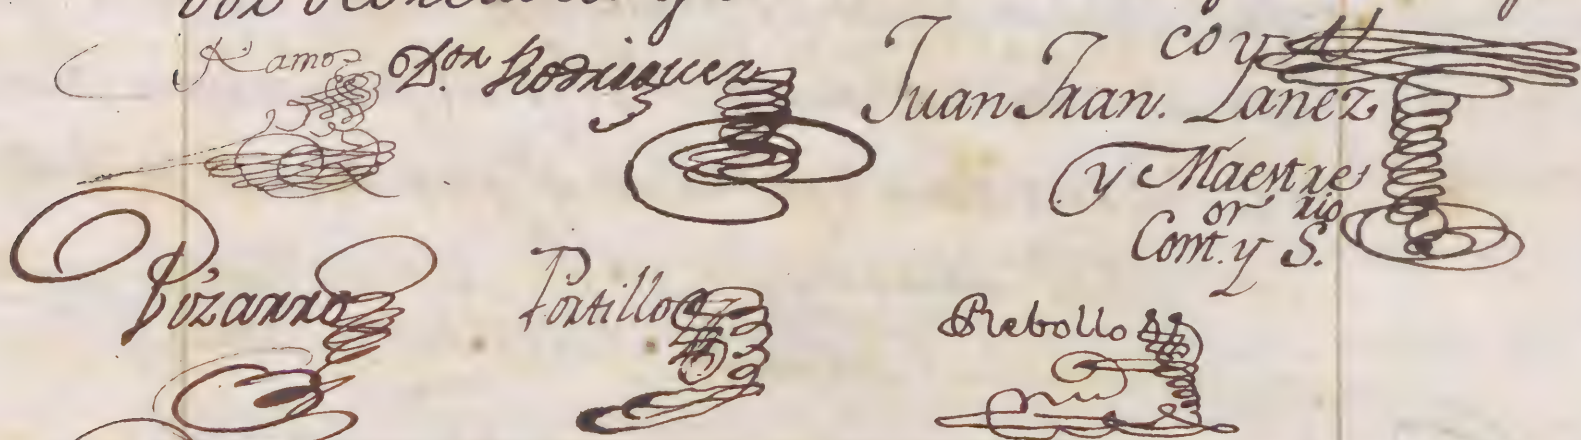 Ramos
D.on Rodriguez
Juan Fran.co Yanez
y Maestre
Cont.or y S.rio
Pizarro
Portillo
Rebollo